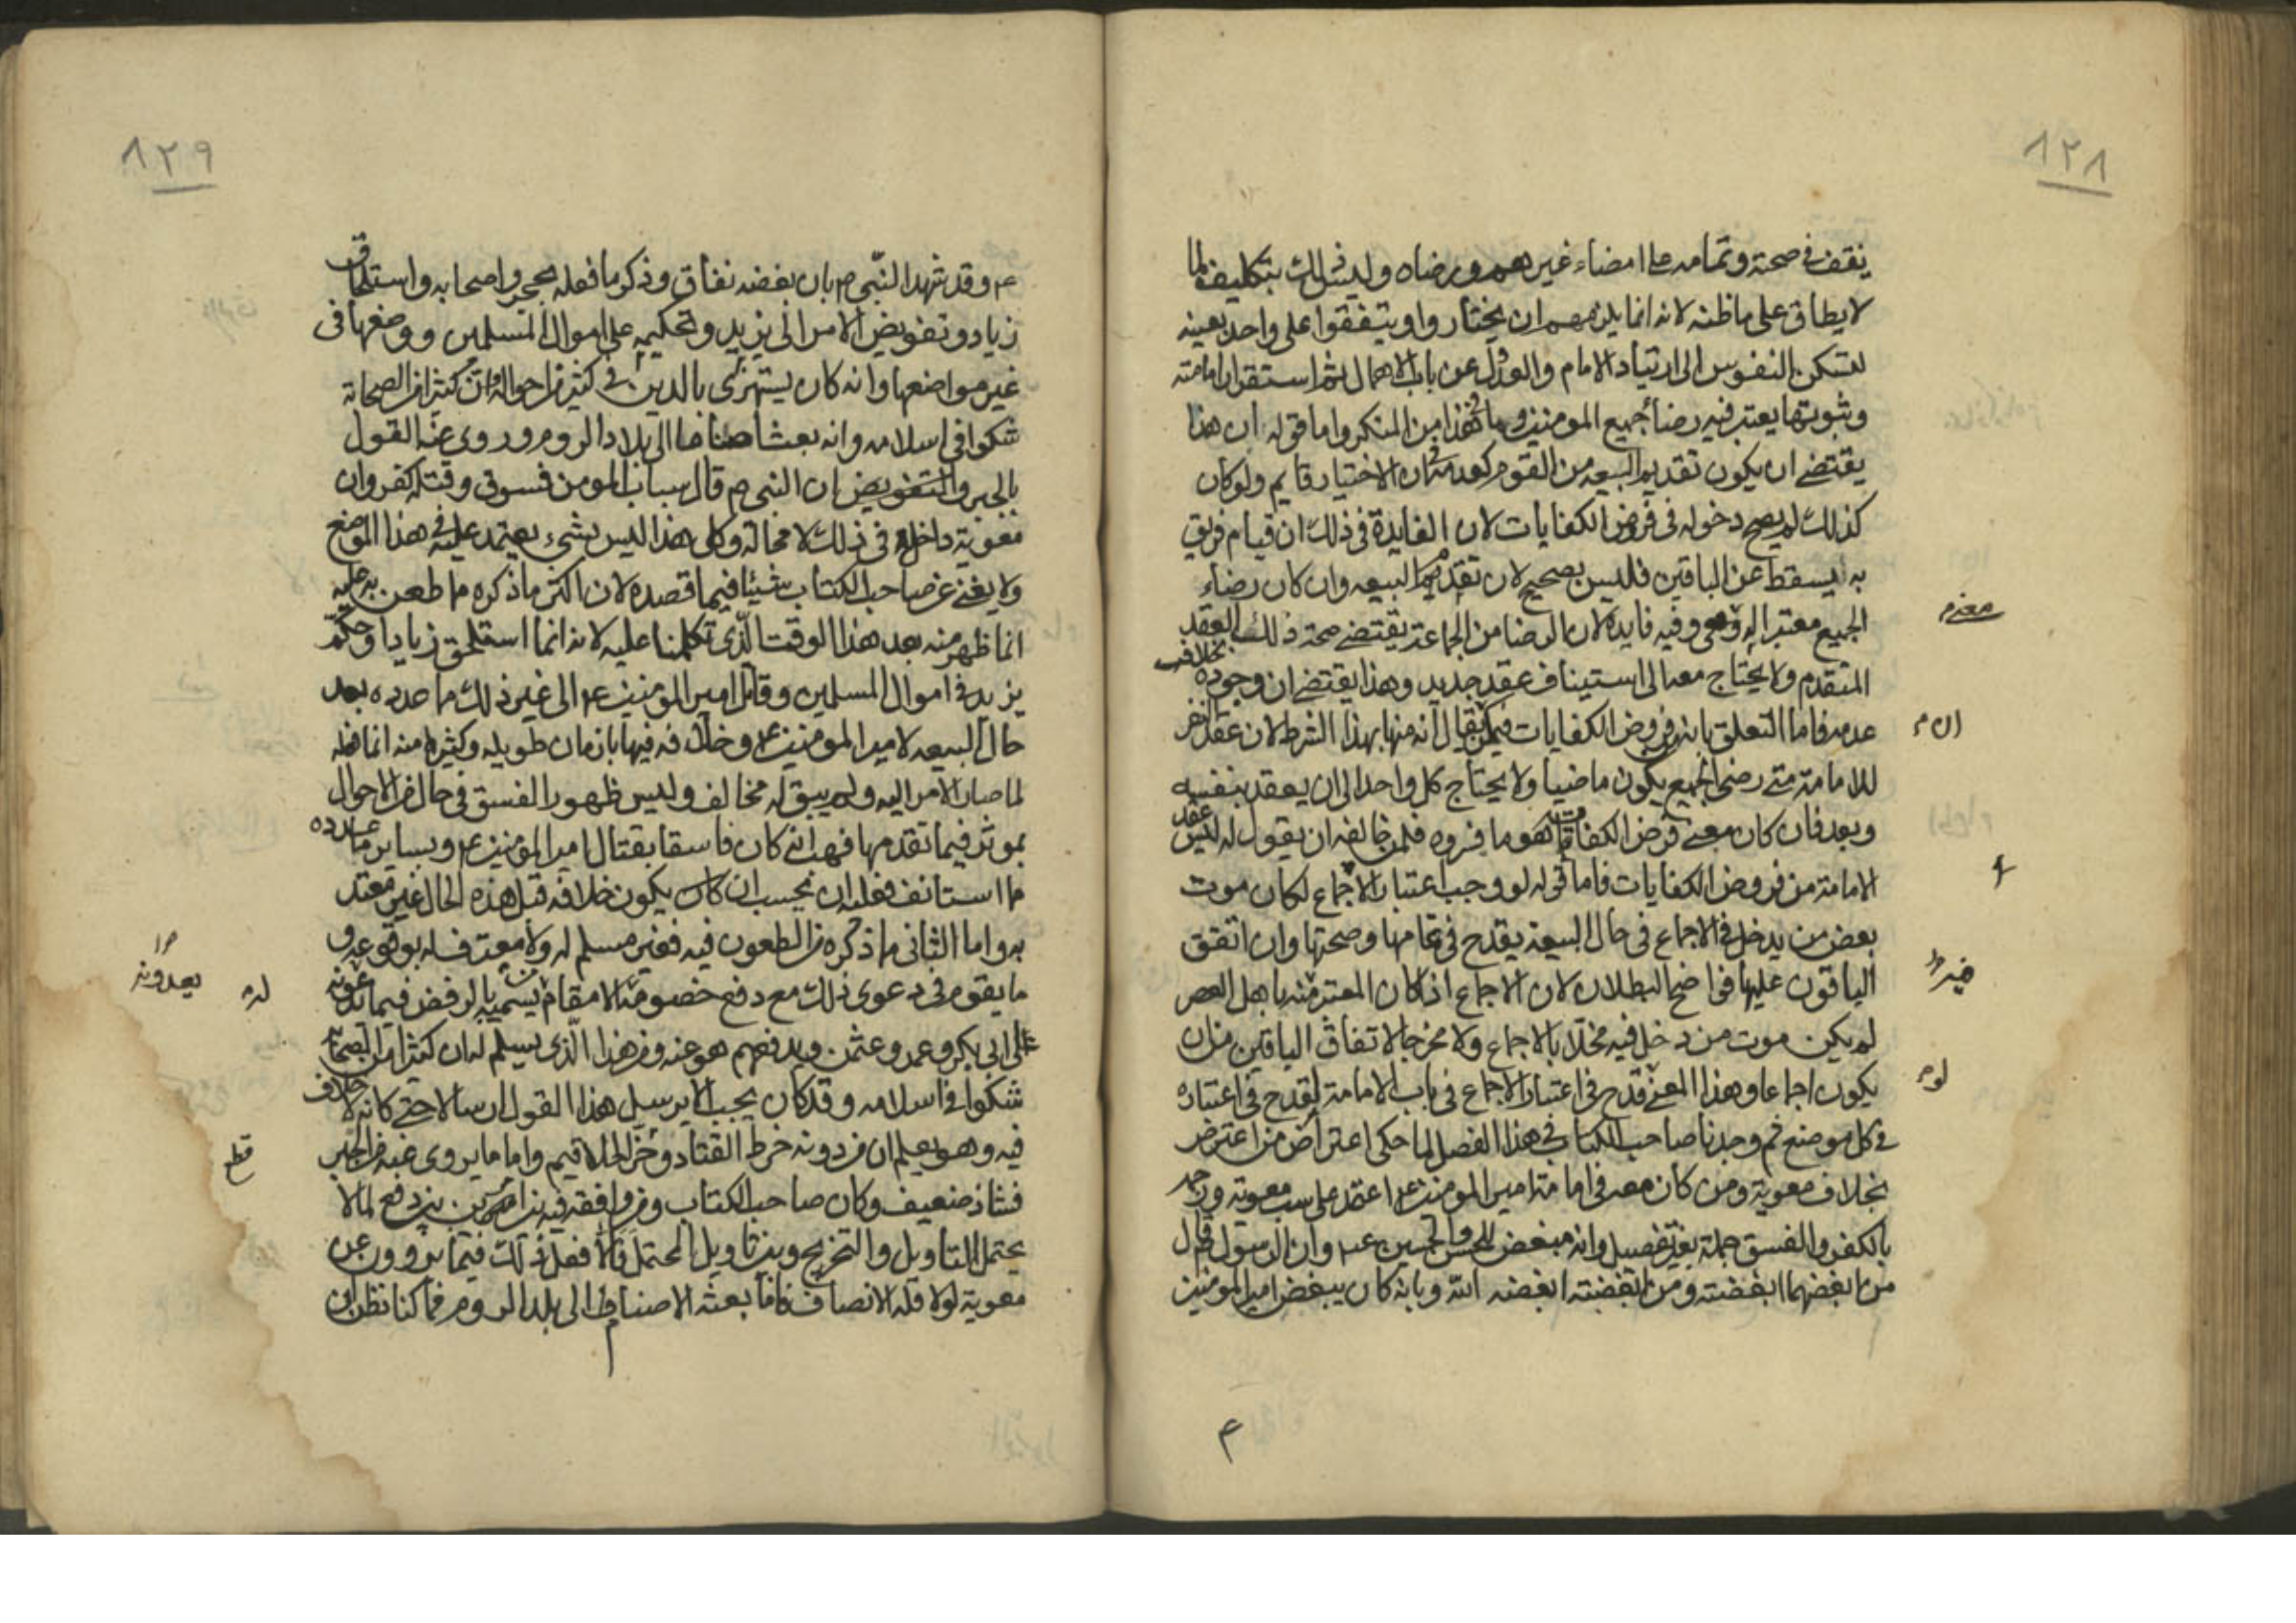 ٨٢٨
يقف في صحته وتمامه على امضاء غيرهم ورضاه وليس ذلك بتكليف لما
لا يطاق على ما ظنه لانه انما يلزمهم ان يختاروا ويتفقوا على واحد بعينه
لتسكن النفوس الى ارتياد الامام والعدول عن باب الاهمال ثم استقرار امامته
وثبوتها يعتبر فيه رضا جميع المومنين وما في هذا من المنكر واما قوله ان هذا
يقتضي ان يكون تقديم البيعه من القوم كعدمه في ان الاختيار قايم ولو كان
كذلك لم يصح دخوله في فروض الكفايات لان الفايدة في ذلك ان قيام فريق
به يسقط عن الباقين فليس بصحيح لان تقديم البيعه وان كان رضاء
الجميع معتبرا له وفيه فايدة لان الرضا من الجماعة يقتضي صحة ذلك العقد
المتقدم ولا يحتاج معه الى استيناف عقد جديد وهذا يقتضي ان وجوده بخلاف
عدمه فاما التعلق بانه من فروض الكفايات فيمكن ان يقال انه منها بهذا الشرط لان عقد النفر
للامامة متى رضي الجميع يكون ماضيا ولا يحتاج كل واحد الى ان يعقد بنفسه
وبعد فان كان معنى فرض الكفايات هو ما فسروه فلمن خالفه ان يقول له ليس عقد
الامامة من فروض الكفايات فاما قوله لو وجب اعتبار الاجماع لكان موت
بعض من يدخل في الاجماع في حال البيعة يقدح في تمامها وصحتها وان اتفق
الباقون عليها فواضح البطلان لان الاجماع اذا كان المعتبر منه باهل العصر
لم يكن موت من دخل فيه مخلا بالاجماع ولا مخرجا لاتفاق الباقين من ان
يكون اجماعا وهذا المعنى قدح في اعتبار الاجماع في باب الامامة لقدح في اعتباره
في كل موضع ثم وجدنا صاحب الكتاب في هذا الفصل لما حكى اعتراض من اعترض
بخلاف معوية ومن كان معه في امامة امير المومنين ع اعتمد على سب معوية ورميه
بالكفر والفسق جملة بغير تفصيل وانه مبغض للحسن والحسين ع وان الرسول قال
من ابغضهما ابغضته ومن ابغضته ابغضه الله وبانه كان يبغض امير المومنين
ان م
لو م
٨٢٩
ع وقد شهد النبي ص بان بغضه نفاق وذكر ما فعله بحجر واصحابه واستلحاق
زياد وتفويض الامر الى يزيد وتحكيمه على اموال المسلمين ووضعها في
غير مواضعها وانه كان يستهزئ بالدين في كثير من احواله وان كثيرا من الصحابة
شكوا في اسلامه وانه بعث اصناما الى بلاد الروم وروى عنه القول
بالجبر والتفويض ان النبي ص قال سباب المومن فسوق وقتله كفر وان
معوية داخل في ذلك لا محالة وكل هذا ليس بشيء يعتمد عليه في هذا الموضع
ولا يغني عن صاحب الكتاب شيئا فيما قصده لان اكثر ما ذكره ما طعن به عليه
انما ظهر منه بعد هذا الوقت الذي تكلمنا عليه لانه انما استلحق زيادا وحكم
يزيد في اموال المسلمين وقاتل امير المومنين ع الى غير ذلك ما عدده بعد
حال البيعه لامير المومنين ع وخلافه فيها بازمان طويله وكثير منه انما فعله
لما صار الامر اليه ولم يبق له مخالف وليس ظهور الفسق في حال من الاحوال
بموثر فيما تقدمها فهب انه كان فاسقا بقتال امير المومنين ع وبساير ما عدده
ما استانف فعله ان يحسب ان كان يكون خلافه قبل هذه الحال غير معتد
به واما الثاني ما ذكره من الطعون فيه فغير مسلم له ولا معترف له بوقوعه و
ما يقوم في دعوى ذلك مع دفع خصومه الا مقام من يسميه بالرفض فيما يدعونه
على ابي بكر وعمر وعثمن ويدفعهم هو عنه ومن هذا الذي يسلم له ان كثيرا من الصحابة
شكوا في اسلامه وقد كان يجب الا يرسل هذا القول ارسالا حتى كانه لا خلاف
فيه وهو يعلم ان من دونه خرط القتاد وحز الحلاقيم واما ما يروى عنه من الجبر
فشاذ ضعيف وكان صاحب الكتاب ومن وافقه فيه بين امرين بين دفع لما لا
يحتمل التاويل والتخريج وبين تاويل المحتمل فالا فعل ذلك فيما يروون عن
معوية لولا قلة الانصاف فاما بعثه الاصنام الى بلد الروم فما كنا نظن ان
يعدونه
له
قطع